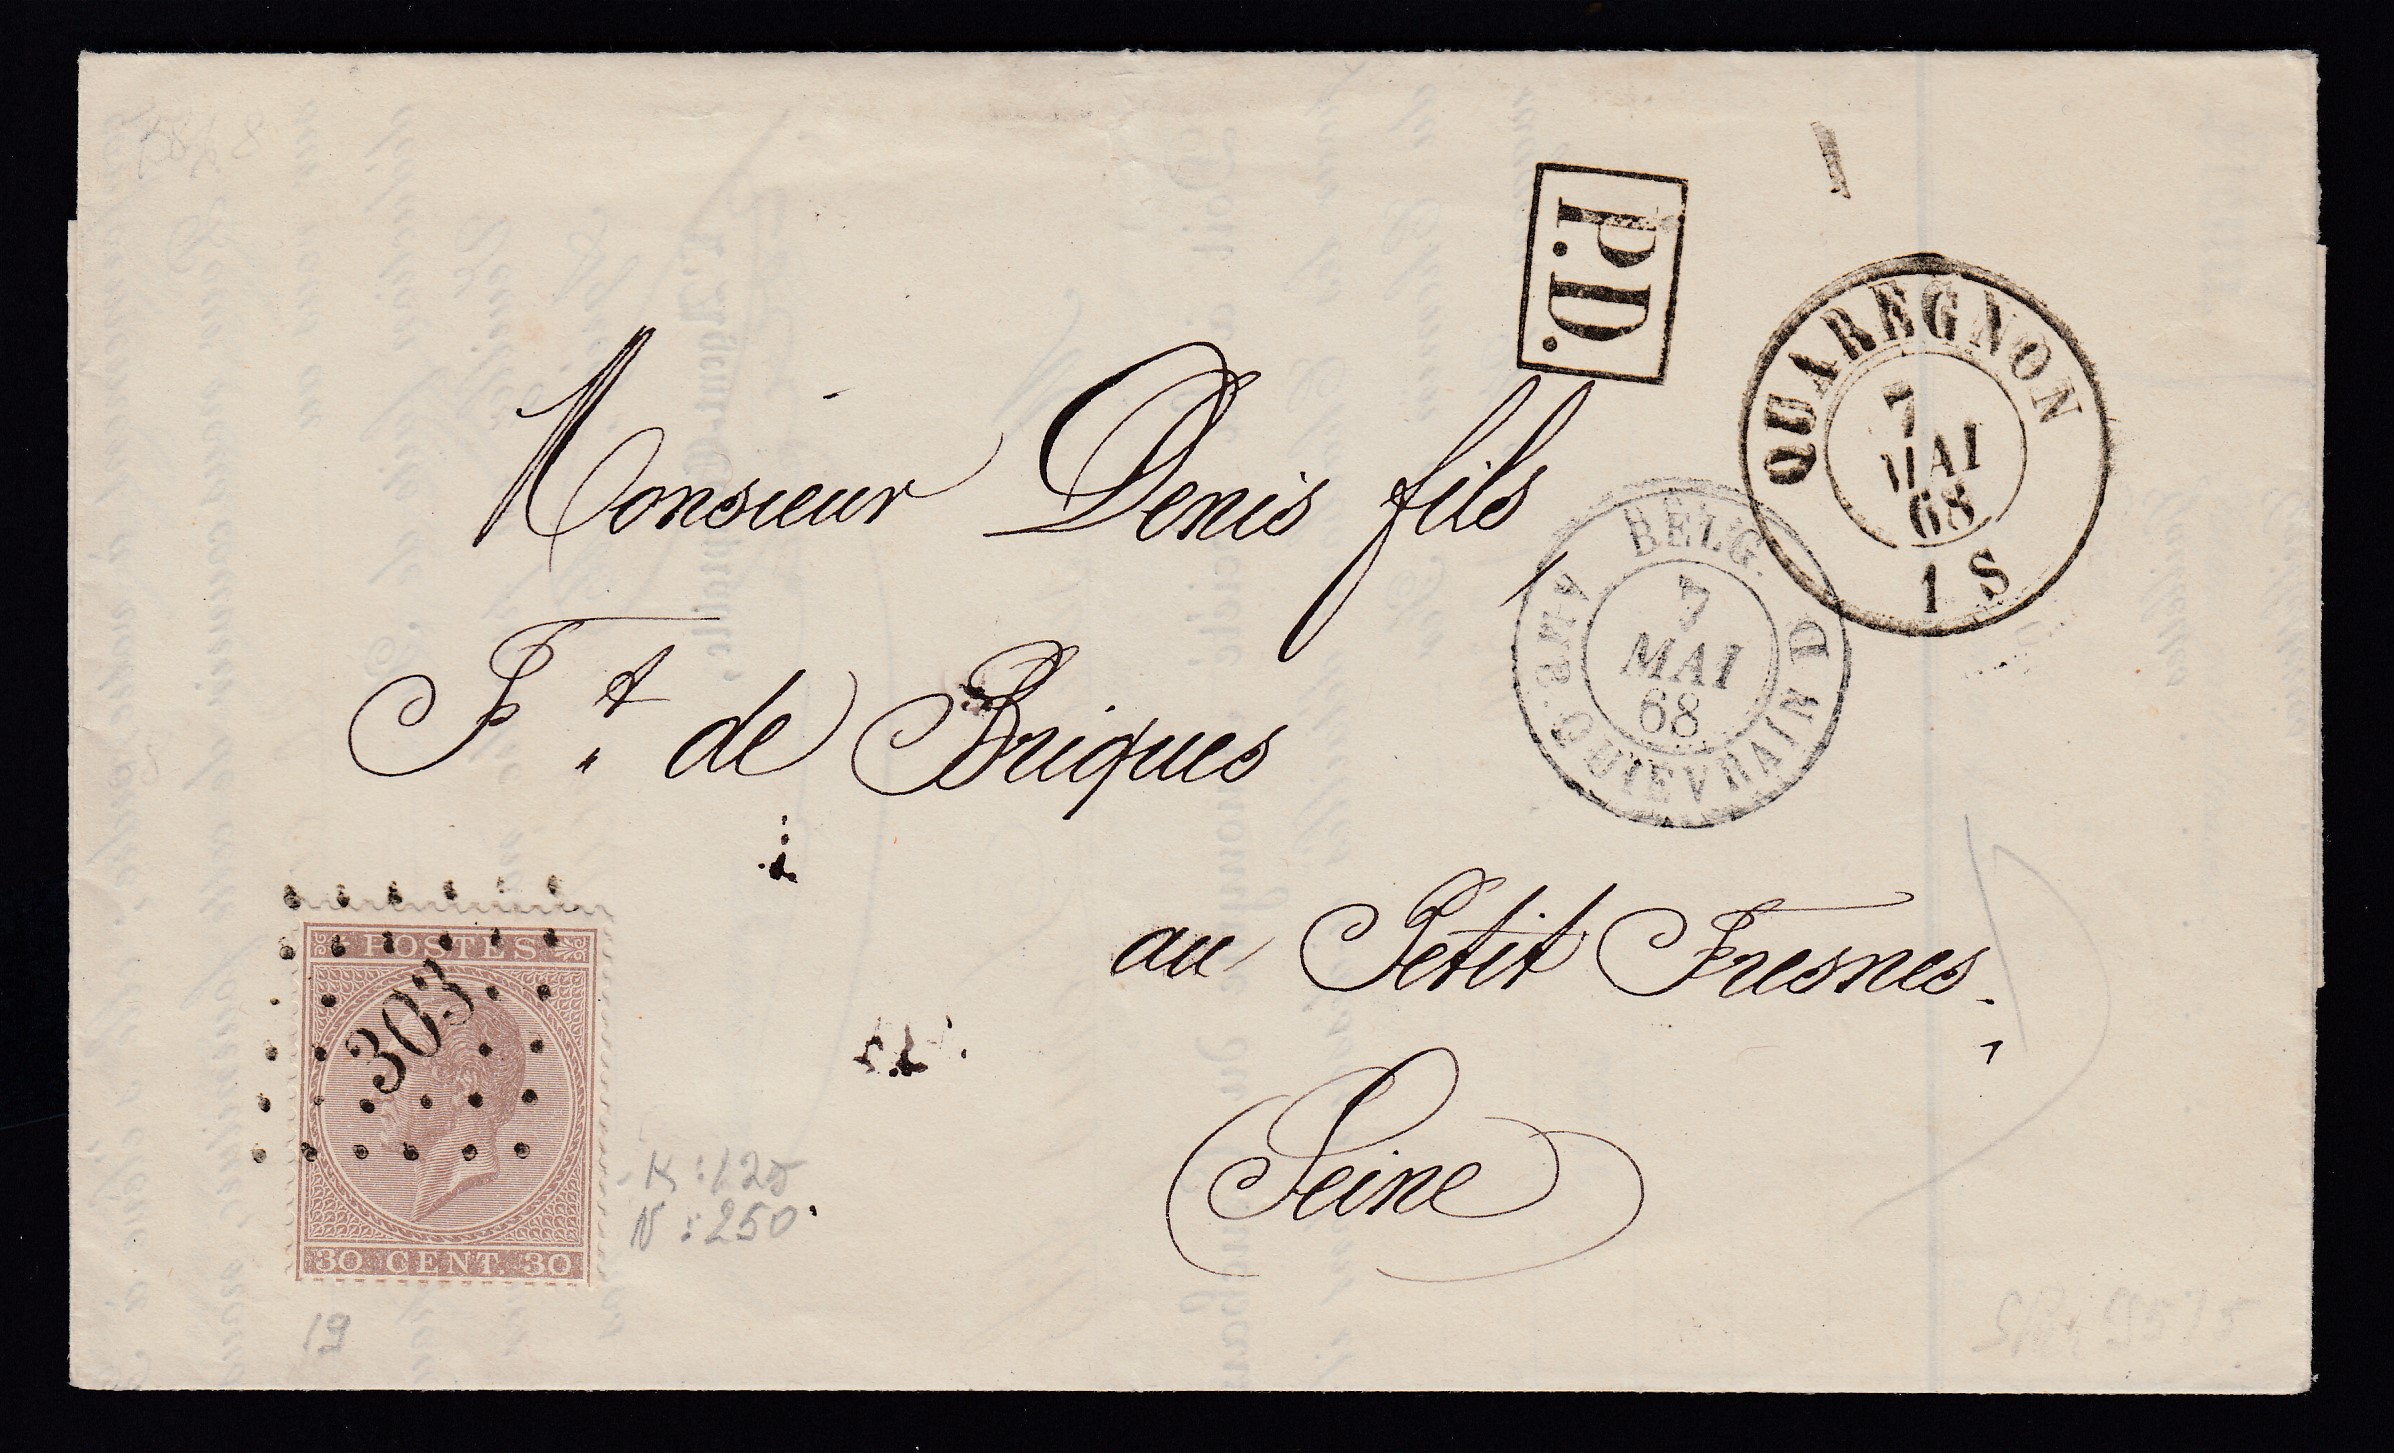 P.D.
QUAREGNON
7
MAI
68
1 S
BELG.
7
MAI
68
AMB. QUIEVRAIN D
Monsieur Denis fils,
Ft. de Briques
au Petit Fresnes.
Seine
POSTES
303
30 CENT. 30
K: 125
N: 250.
19